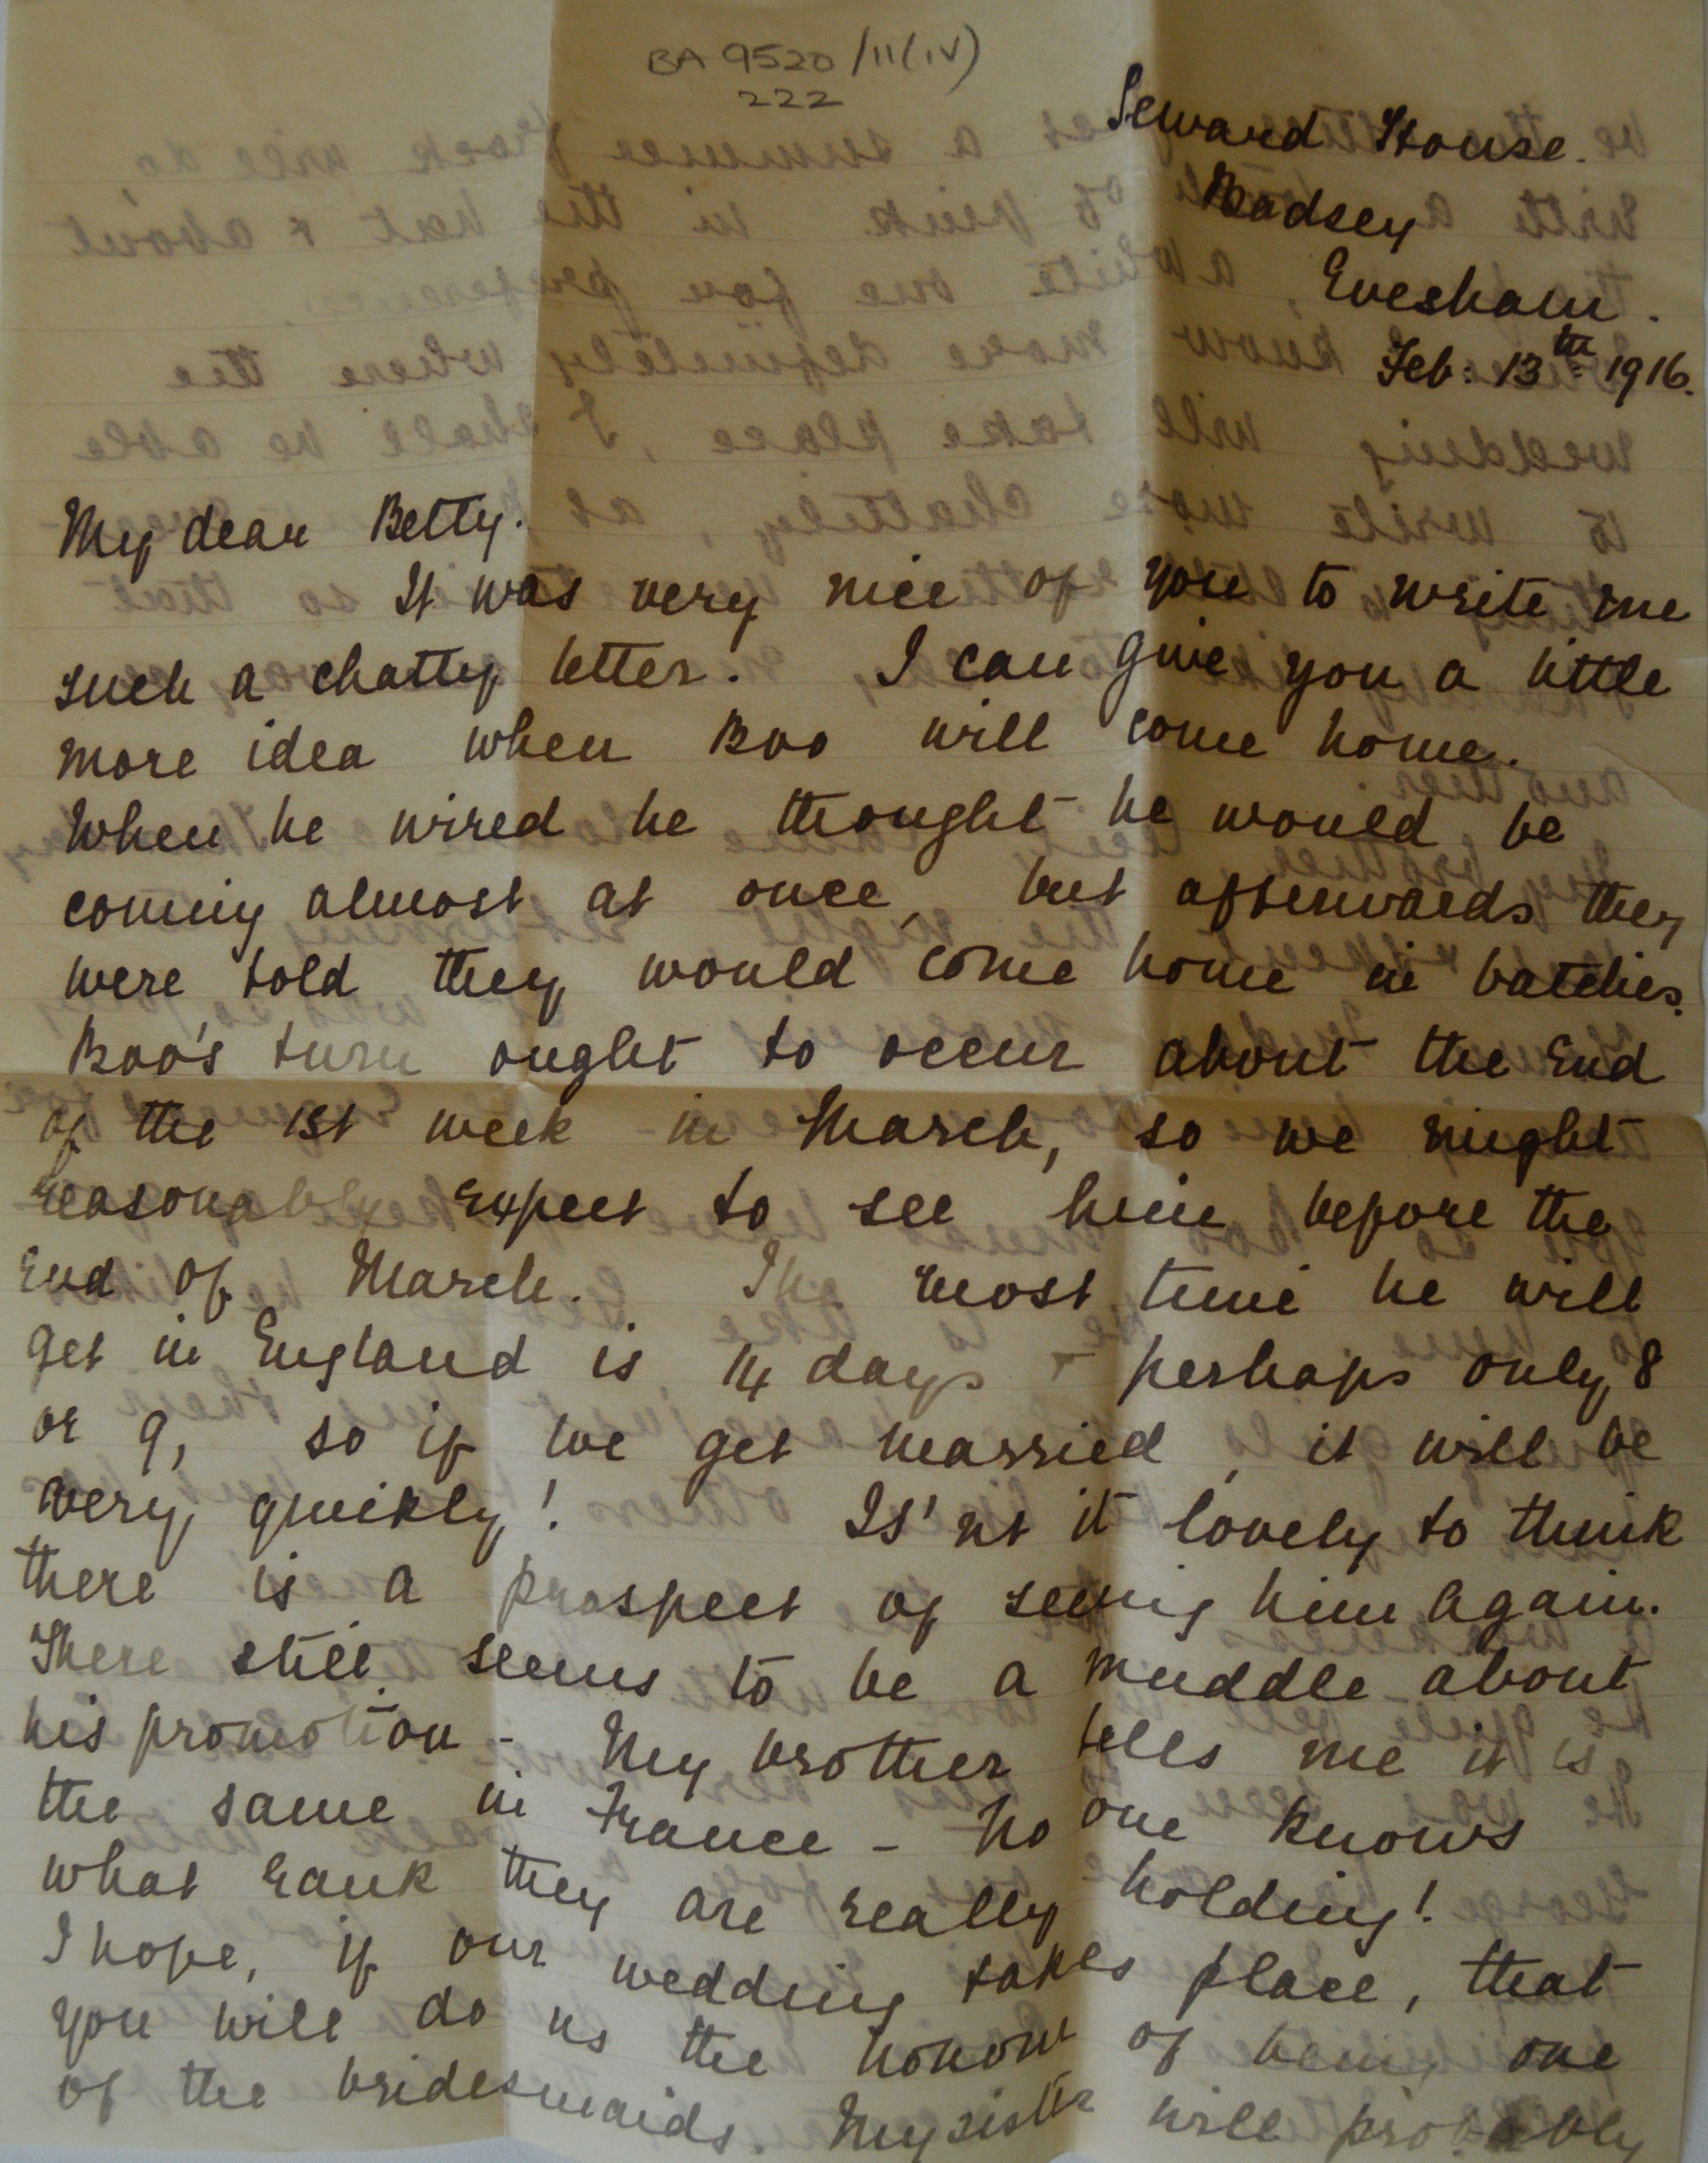 BA 9520/11(iv)
222
Seward House.
Badsey
Evesham.
Feb: 13th 1916.
My dear Betty.
It was very nice of you to write me
such a chatty letter. I can give you a little
more idea when Boo will come home.
When he wired he thought he would be
coming almost at once, but afterwards they
were told they would come home in batches.
Boo's turn ought to occur about the end
of the 1st week in March, so we might
reasonably expect to see him before the
end of March. The most time he will
get in England is 14 days - perhaps only 8
or 9, so if we get married, it will be
very quickly! Is'nt it lovely to think
there is a prospect of seeing him again.
There still seems to be a muddle about
his promotion - My brother tells me it is
the same in France - no one knows
what rank they are really holding!
I hope, if our wedding takes place, that
you will do us the honour of being one
of the bridesmaids. My sister will probably